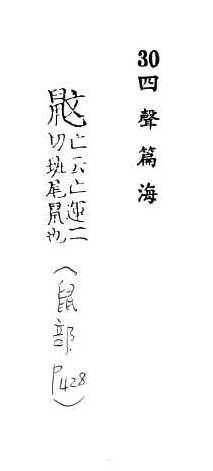 30四聲篇海
鼤亡云亡運二
切斑尾鼠也
（鼠部
P428）